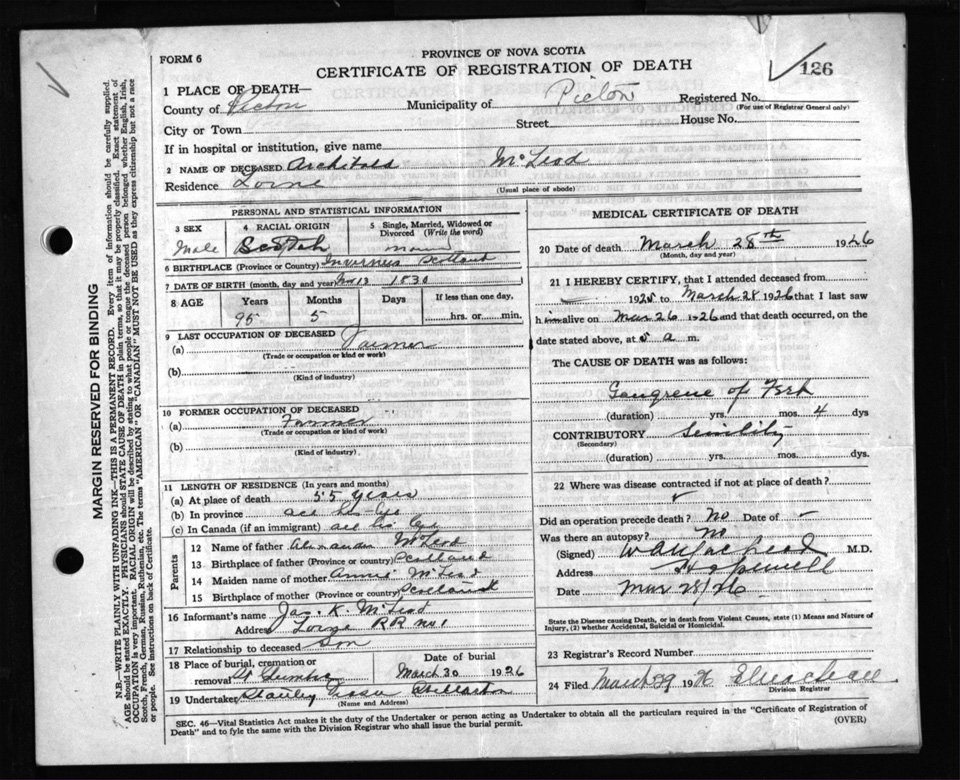 FORM 6
PROVINCE OF NOVA SCOTIA
CERTIFICATE OF REGISTRATION OF DEATH
126
1 PLACE OF DEATH—
County of Pictou Municipality of Pictou Registered No.
(For use of Registrar General only)
City or Town Street House No.
If in hospital or institution, give name
2 NAME OF DECEASED Archibald McLeod
Residence Lorne
(Usual place of abode)
PERSONAL AND STATISTICAL INFORMATION
3 SEX Male
4 RACIAL ORIGIN Scottish
5 Single, Married, Widowed or Divorced (Write the word)
6 BIRTHPLACE (Province or Country) Inverness Scotland
7 DATE OF BIRTH (month, day and year) 13 1830
8 AGE Years Months Days If less than one day,
95 5 hrs. or min.
9 LAST OCCUPATION OF DECEASED
(a) Farmer
(Trade or occupation or kind of work)
(b)
(Kind of industry)
10 FORMER OCCUPATION OF DECEASED
(a) Farmer
(Trade or occupation or kind of work)
(b)
(Kind of industry)
11 LENGTH OF RESIDENCE (In years and months)
(a) At place of death 55 years
(b) In province all his life
(c) In Canada (if an immigrant) all his life
Parents
12 Name of father Alexander McLeod
13 Birthplace of father (Province or country) Scotland
14 Maiden name of mother Annie McLeod
15 Birthplace of mother (Province or country) Scotland
16 Informant's name Jas. K. McLeod
Address Lorne RR No 1
17 Relationship to deceased Son
18 Place of burial, cremation or removal Date of burial
March 30 1926
19 Undertaker Stanley Stellarton
(Name and Address)
MEDICAL CERTIFICATE OF DEATH
20 Date of death March 28th 1926
(Month, day and year)
21 I HEREBY CERTIFY, that I attended deceased from
1925 to March 28 1926 that I last saw
him alive on Mar 26 1926 and that death occurred, on
date stated above, at 5 a m.
The CAUSE OF DEATH was as follows:
Gangrene of Foot
(duration) yrs. mos. 4 dys
CONTRIBUTORY Senility
(Secondary)
(duration) yrs. mos. dys.
22 Where was disease contracted if not at place of death?
Did an operation precede death? No Date of —
Was there an autopsy? No
(Signed) M.D.
Address Hopewell
Date Mar 28/26
State the Disease causing Death, or in death from Violent Causes, state (1) Means and Nature of
Injury, (2) whether Accidental, Suicidal or Homicidal.
23 Registrar's Record Number
24 Filed March 29 1926
Division Registrar
SEC. 46—Vital Statistics Act makes it the duty of the Undertaker or person acting as Undertaker to obtain all the particulars required in the "Certificate of Registration of
Death" and to fyle the same with the Division Registrar who shall issue the burial permit.
(OVER)
MARGIN RESERVED FOR BINDING
N.B.—WRITE PLAINLY WITH UNFADING INK—THIS IS A PERMANENT RECORD. Every item of information should be carefully supplied.
AGE should be stated EXACTLY. PHYSICIANS should STATE CAUSE OF DEATH in plain terms, so that it may be properly classified. Exact statement of
OCCUPATION is very important. RACIAL ORIGIN will be described by stating to what people or tongue the deceased person belonged whether English, Irish,
Scotch, French, German, Russian, Ruthenian, etc. The terms "AMERICAN" OR "CANADIAN" MUST NOT BE USED as they express citizenship but not a race
or people. See instructions on back of Certificate.